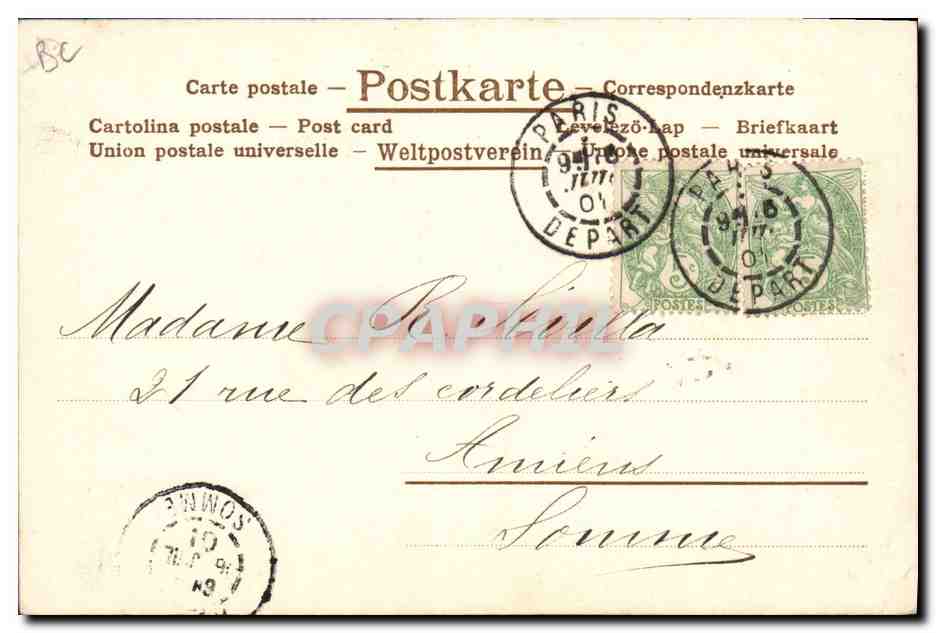 BC
Carte postale – Postkarte – Correspondenzkarte
Cartolina postale — Post card Levelező-Lap — Briefkaart
Union postale universelle – Weltpostverein – Unione postale universale
PARIS
01
DEPART
PARIS
01
DEPART
POSTES
POSTES
Madame R.
CPAPHIL
21 rue des cordeliers
Amiens
Somme
SOMME
01